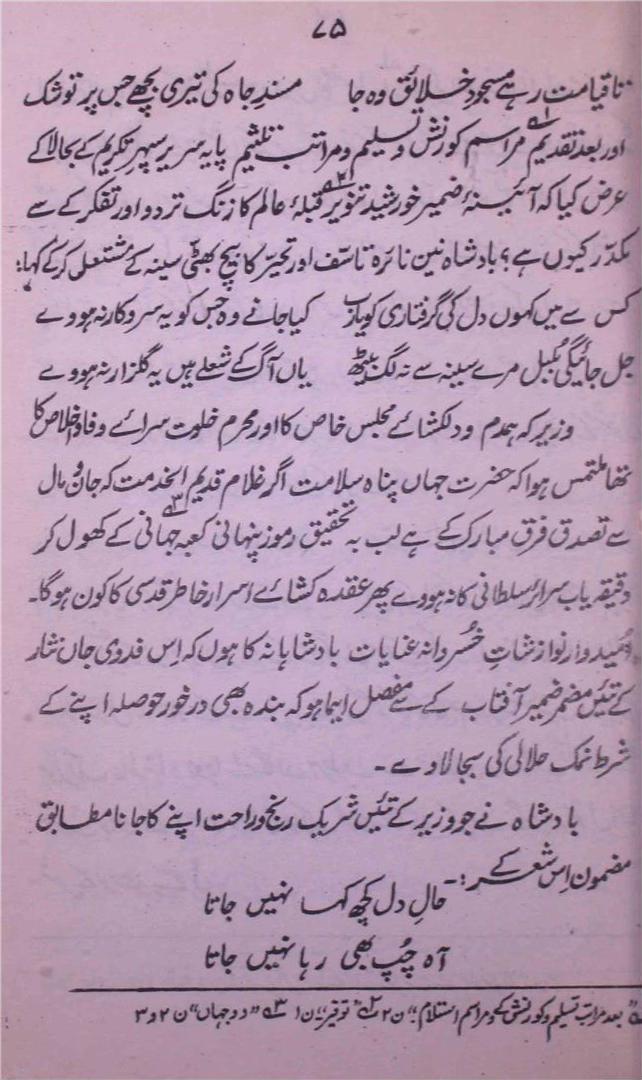 ۷۵
تا قیامت رہے مسجودِ خلائق وہ جا مسندِ جاہ کی تیری بچھے جس پر توشک
اور بعد تقدیم مراسم کورنش و تسلیم و مراتب تنظیم پایہ سریر سپہر تکریم کے بجا لا کے
عرض کیا کہ آئینۂ ضمیر خورشید تنویر قبلۂ عالم کا زنگ تردو اور تفکر کے سے
مکدّر کیوں ہے؟ بادشاہ نیں نائرہ تاسّف اور تحیّر کا بیچ بھٹّی سینہ کے مشتعل کر کے کہا؛
کس سے میں کہوں دل کی گرفتاری کو یارب کیا جانے وہ جس کو یہ سروکار نہ ہووے
جل جائیگی بُلبل مرے سینہ سے نہ لگ بیٹھ یاں آگ کے شعلے ہیں یہ گلزار نہ ہووے
وزیر کہ ہمدم و دلکشائے مجلس خاص کا اور محرم خلوت سرائے وفا و اخلاص کا
تھا ملتمس ہوا کہ حضرت جہاں پناہ سلامت اگر غلام قدیم الخدمت کہ جان و مال
سے تصدق فرق مبارک کے ہے لب بہ تحقیقِ رموز پنہانی کعبہ جہانی کے کھول کر
دقیقہ یاب سرائر سلطانی کا نہ ہووے پھر عقدہ کشائے اسرار خاطر قدسی کا کون ہوگا۔
اُمیدوار نوازشاتِ خُسروانہ عنایات بادشاہانہ کا ہوں کہ اِس فدوی جاں نثار
کے تئیں مضمر ضمیر آفتاب کے سے مفصل ایما ہو کہ بندہ بھی درخور حوصلہ اپنے کے
شرط نمک حلالی کی بجا لاوے۔
بادشاہ نے جو وزیر کے تئیں شریک رنج و راحت اپنے کا جانا مطابق
مضمون اِس شعر کے؛۔
حالِ دل کچھ کہا نہیں جاتا
آہ چُپ بھی رہا نہیں جاتا
۱؎ ”بعد مراتب تسلیم و کورنش کے و مراسم استلام“؛ ن۲ ۲؎ ”توقیر“؛ ن۱ ۳؎ ”دو جہاں“ ن۲ و ۳